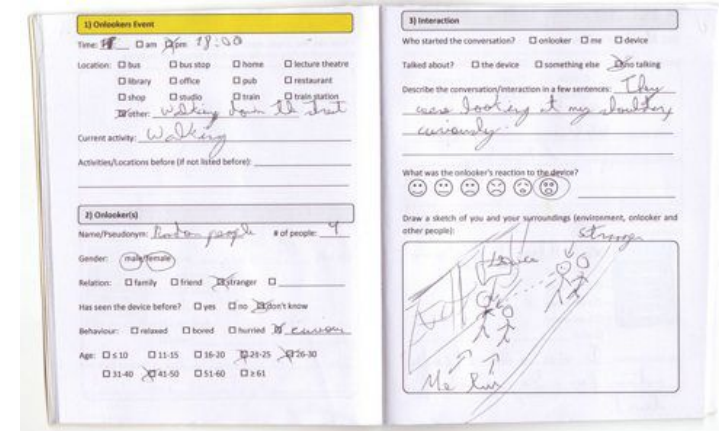 1) Onlookers Event
Time: ☐ am ☒ pm 18:00
Location: ☐ bus ☐ bus stop ☐ home ☐ lecture theatre
☐ library ☐ office ☐ pub ☐ restaurant
☐ shop ☐ studio ☐ train ☐ train station
☒ other: Walking down the street
Current activity: Walking
Activities/Locations before (if not listed before):
2) Onlooker(s)
Name/Pseudonym: Random people # of people: 4
Gender: male/female
Relation: ☐ family ☐ friend ☒ stranger ☐
Has seen the device before? ☐ yes ☐ no ☒ don't know
Behaviour: ☐ relaxed ☐ bored ☐ hurried ☒ curious
Age: ☐ ≤ 10 ☐ 11-15 ☐ 16-20 ☒ 21-25 ☒ 26-30
☐ 31-40 ☒ 41-50 ☐ 51-60 ☐ ≥ 61
3) Interaction
Who started the conversation? ☐ onlooker ☐ me ☐ device
Talked about? ☐ the device ☐ something else ☒ no talking
Describe the conversation/interaction in a few sentences: They
were looking at my shoulder
curiously.
What was the onlooker's reaction to the device?
Draw a sketch of you and your surroundings (environment, onlooker and
other people):
stranger
Device
Me